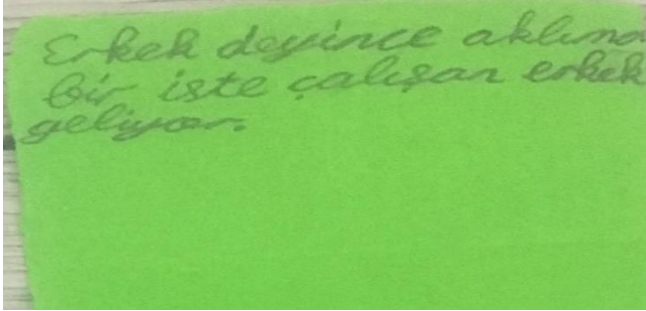 Erkek deyince aklıma
bir işte çalışan erkek
geliyor.